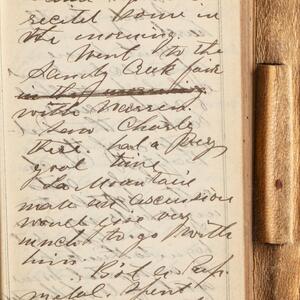 recited some in
the morning.
Went to the
Sandy Creek fair
in the morning
with Warren.
Saw Charly
there. had a very
good time
La Mountain
made an ascension
would give very
much to go with
him.
metal. Spent